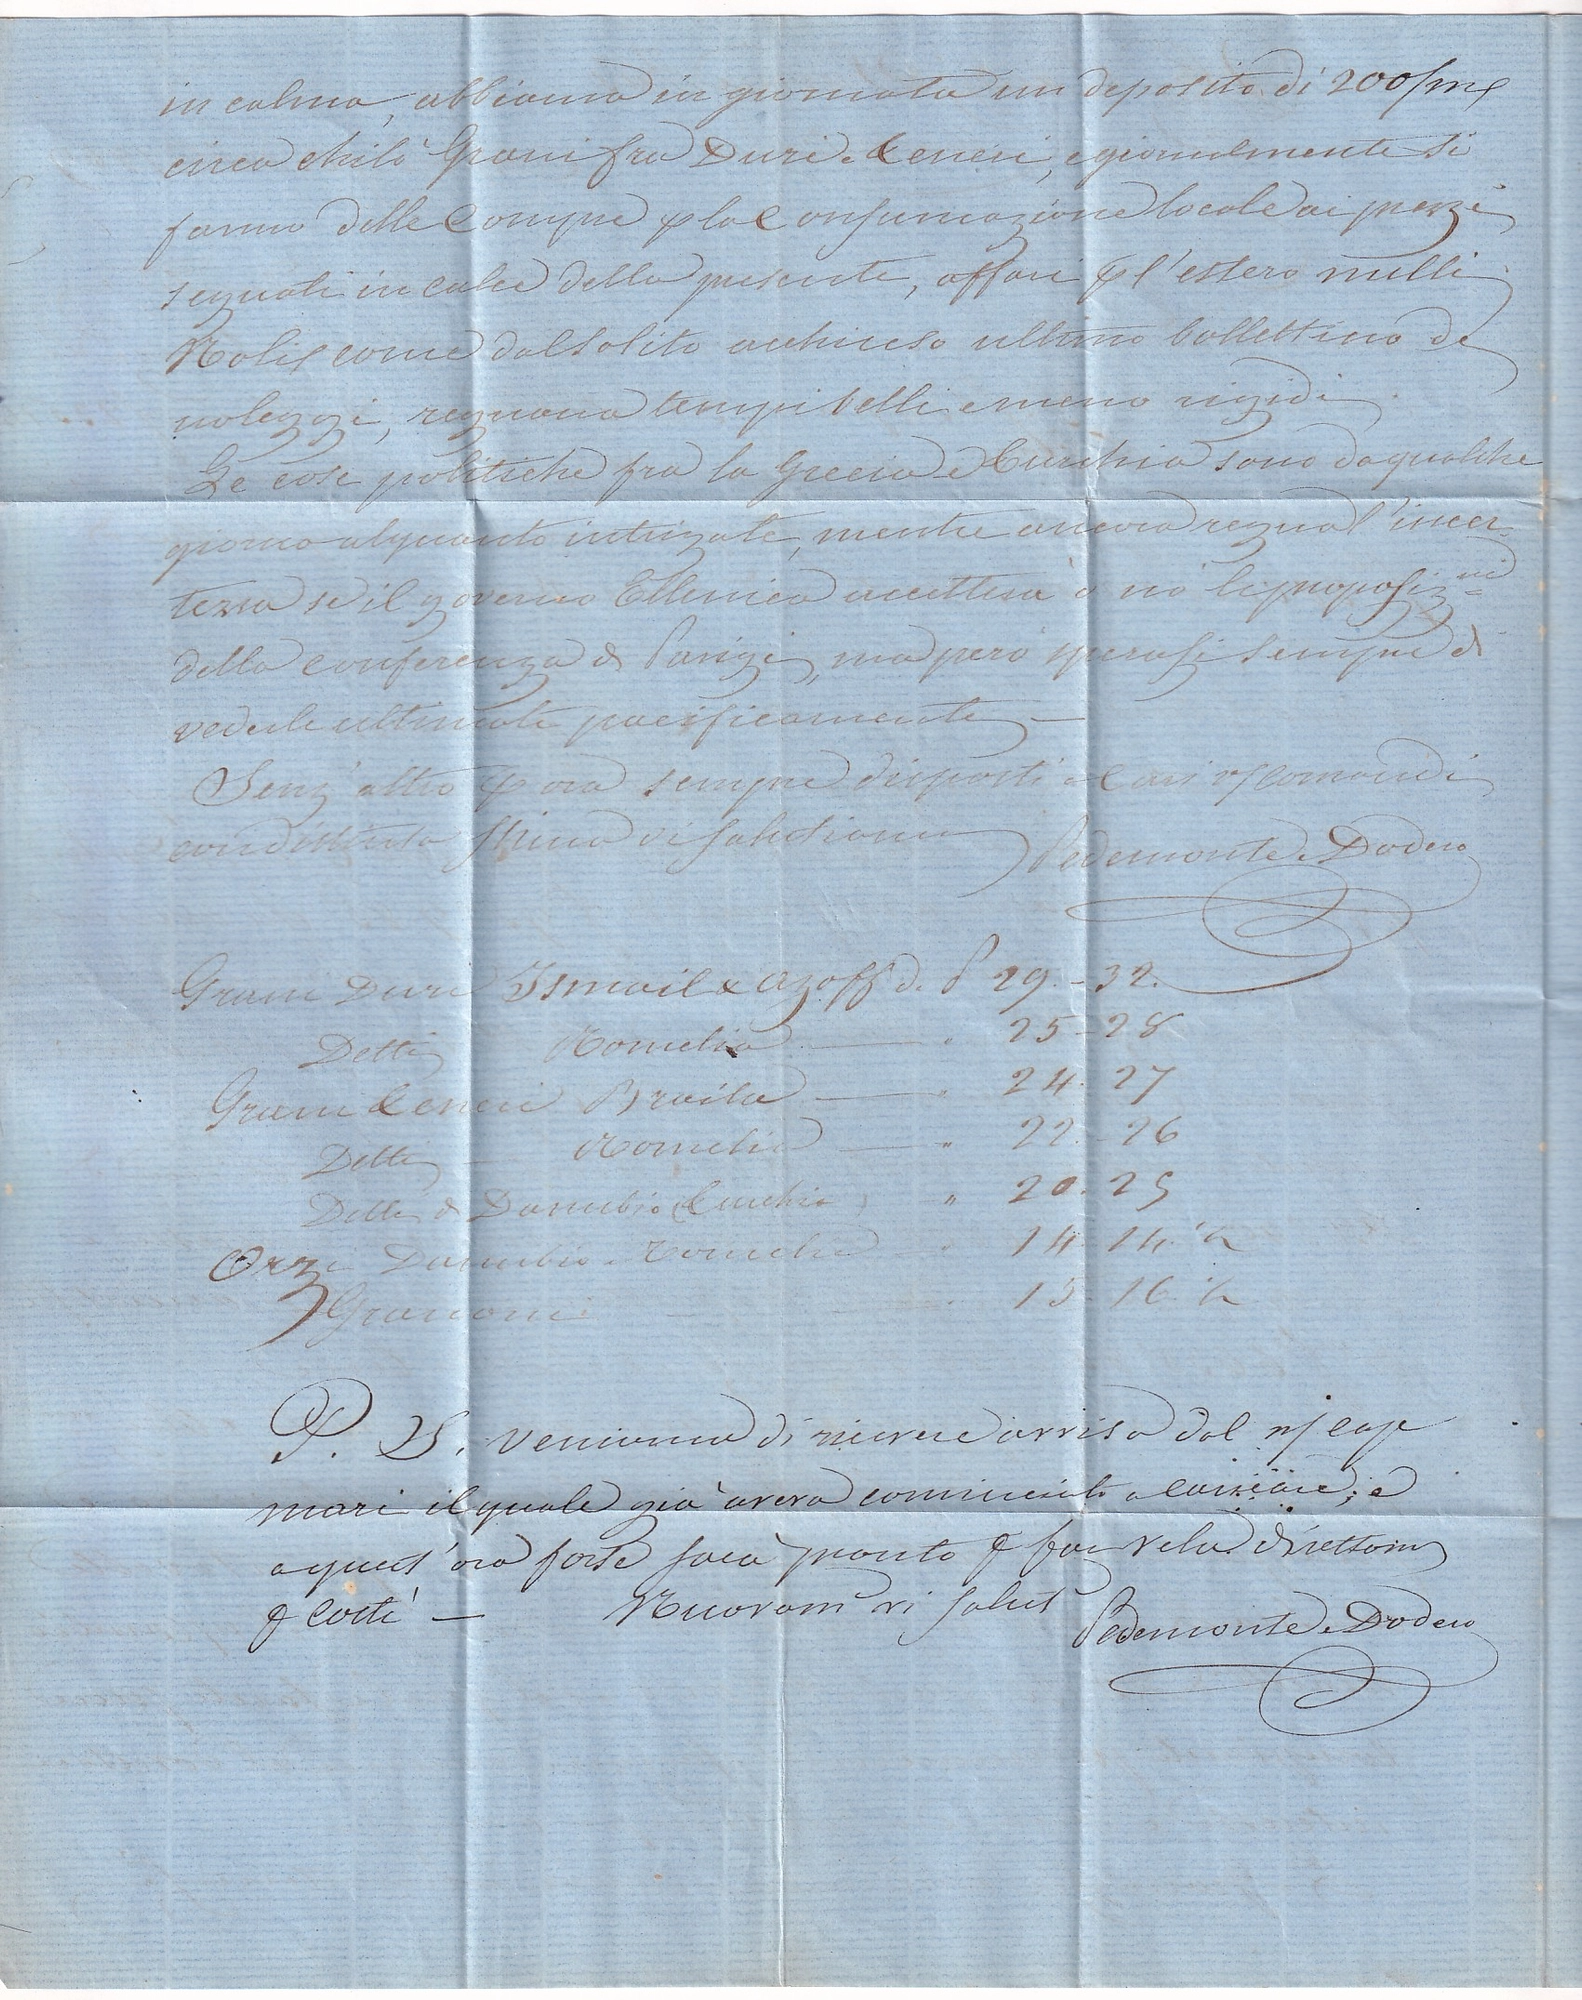 in calma, abbiamo in giornata un deposito di 200/m
circa chilò Grani fra Duri e Teneri, e giornalmente si
fanno delle Compre p la Consumazione locale ai prezzi
segnati in calce della presente, affari p l'estero nulli
Noli come dal solito acchiuso ultimo bollettino de
noleggi, regnano tempi belli e meno rigidi.
Le cose politiche fra la Grecia e Turchia sono da qualche
giorno alquanto intrigate, mentre ancora regna l'incer-
tezza se il governo Ellenico accetterà o nò le proposizni
della conferenza di Parigi, ma però sperasi sempre di
vederle ultimate pacificamente —
Senz'altro p ora sempre disposti a cari vs/ comandi
con distinta stima vi salutiamo Pedemonte e Dodero
Grani Duri Ismail & Azoff d. P 29.-32.
Detti Romelia — " 25-28
Grani Teneri Braila — " 24.27
Detti — Romelia — " 22-26
Detti di Danubio (Turchia) " 20.25
Orzi Danubio e Romelia " 14.14.½
Granoni — 15 16.½
P. S. Veniamo di ricevere avviso dal ns/ Cap
mari il quale già aveva cominciato a caricare; e
a quest'ora forse sarà pronto p far vela direttam
p Costì — Nuovam vi salut Pedemonte e Dodero